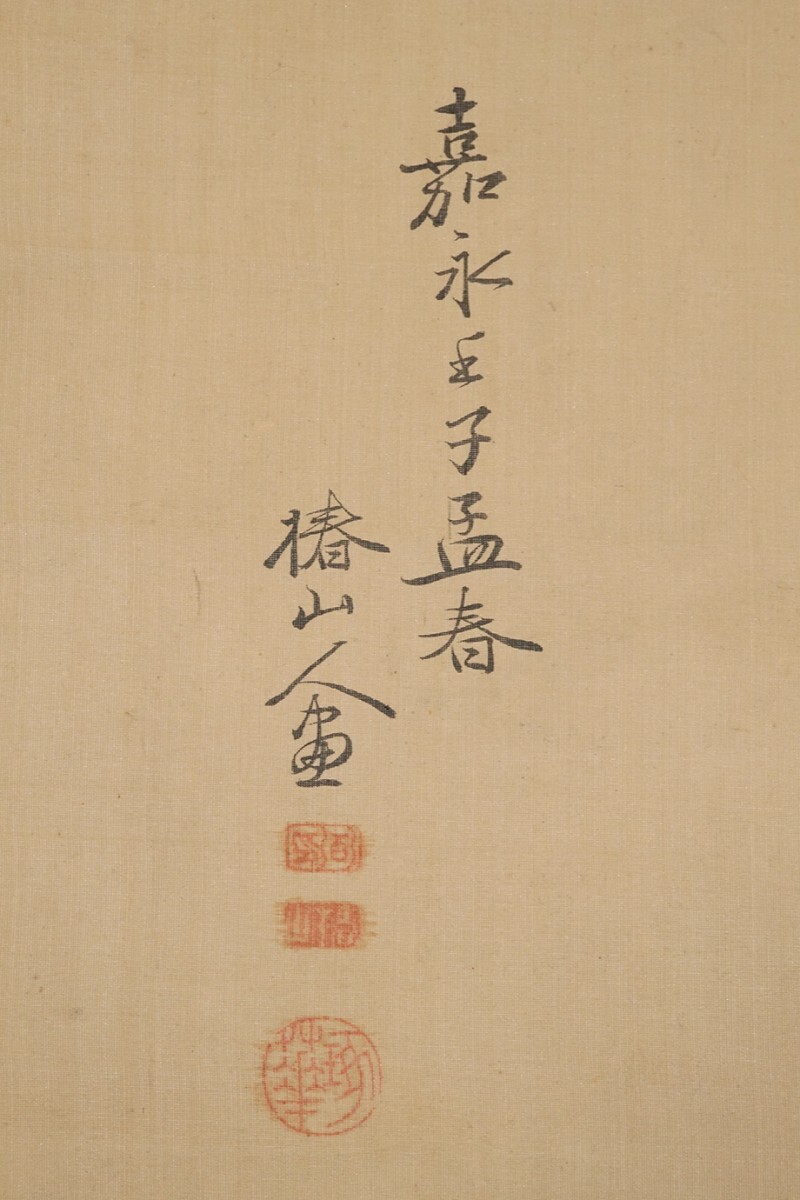 嘉永壬子孟春
椿山人画